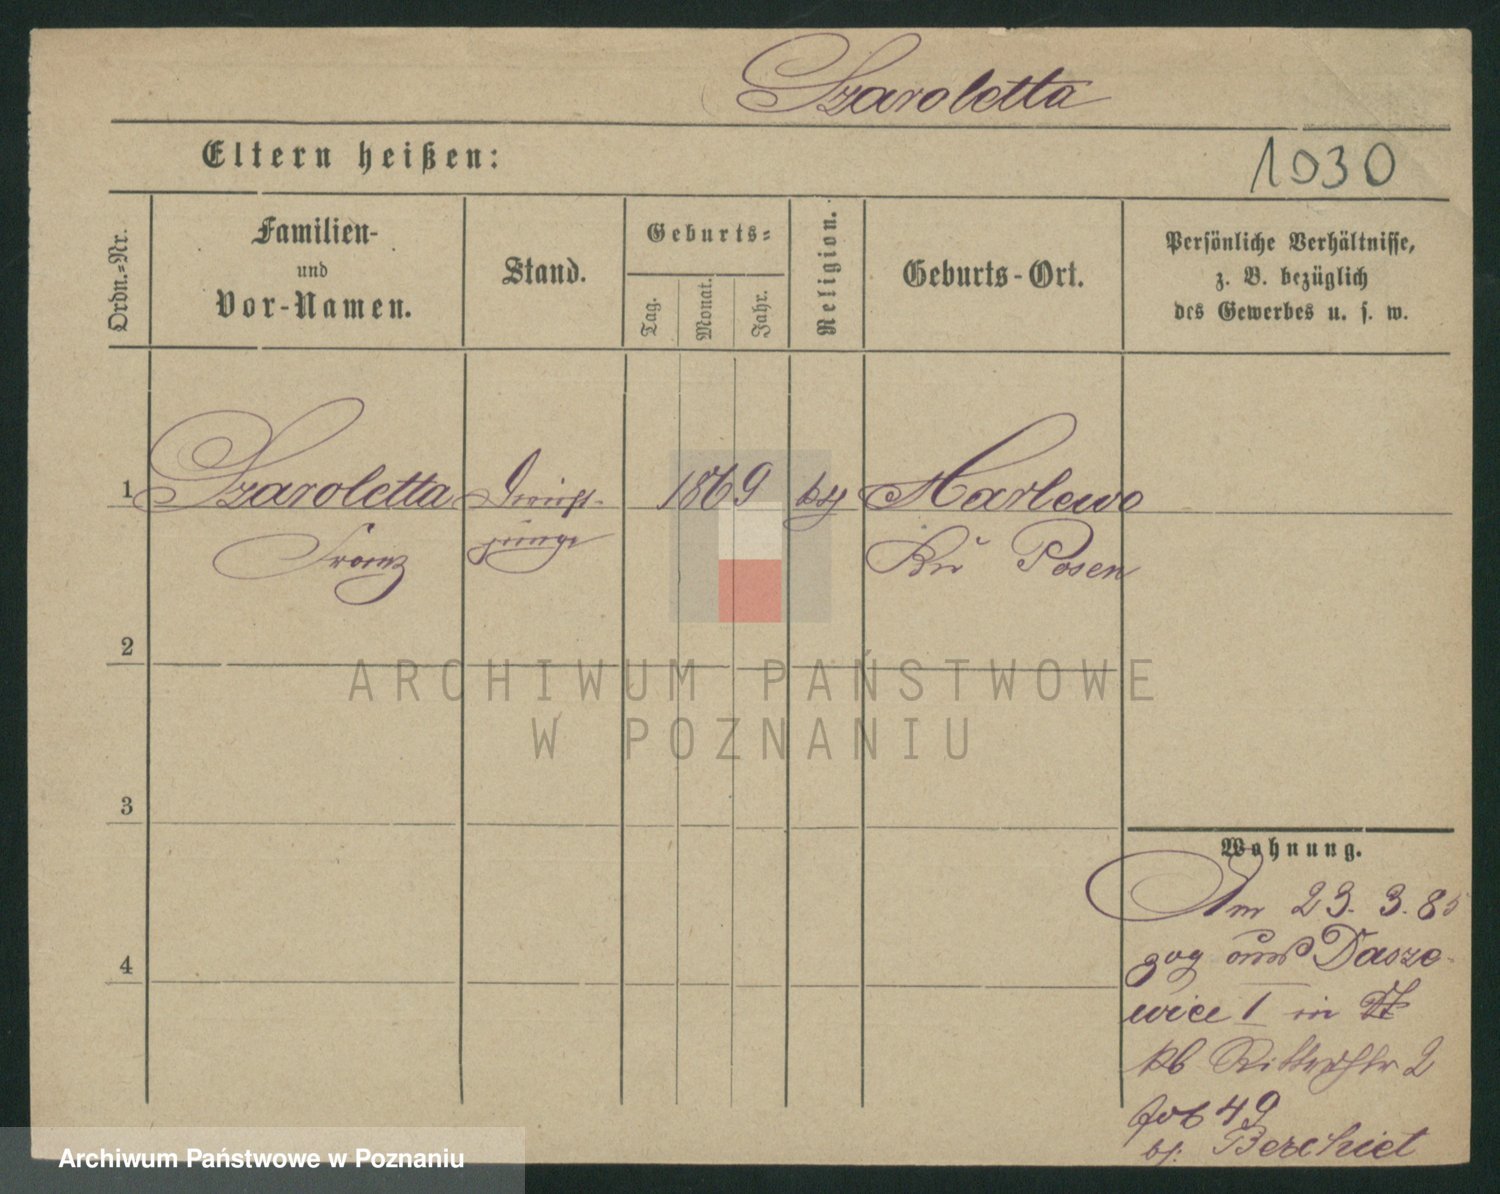 Szaroletta
Eltern heißen:
1030
Ordn.-Nr.
Familien-
und
Vor-Namen.
Stand.
Geburts-
Tag.
Monat.
Jahr.
Religion.
Geburts-Ort.
Persönliche Verhältnisse,
z. B. bezüglich
des Gewerbes u. s. w.
1
Szaroletta
Franz
junge
1869
Marlewo
Posen
2
3
4
Wohnung.
Am 23. 3. 85
zog aus Dasze-
wice I in
Ritterstr 2
49
bei Berchiet
ARCHIWUM PAŃSTWOWE
W POZNANIU
Archiwum Państwowe w Poznaniu